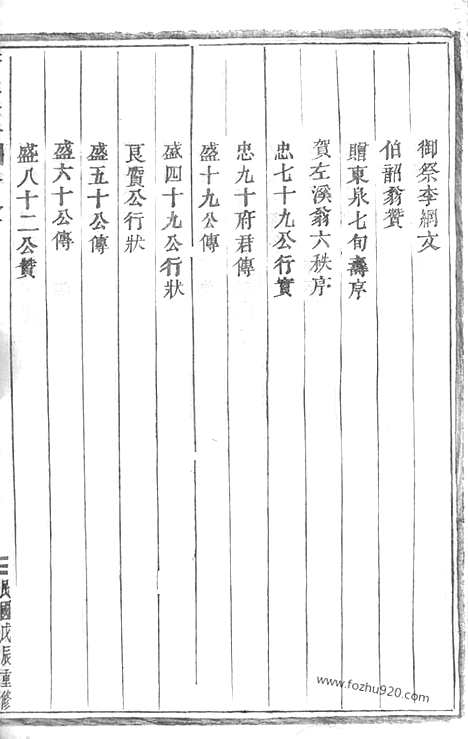 御祭李綱文
伯韶翁贊
贈東泉七旬壽序
賀左溪翁六秩序
忠七十九公行實
忠九十府君傳
盛十九公傳
盛四十九公行狀
良質公行狀
盛五十公傳
盛六十公傳
盛八十二公贊
民國戊辰重修
www.fozhu920.com